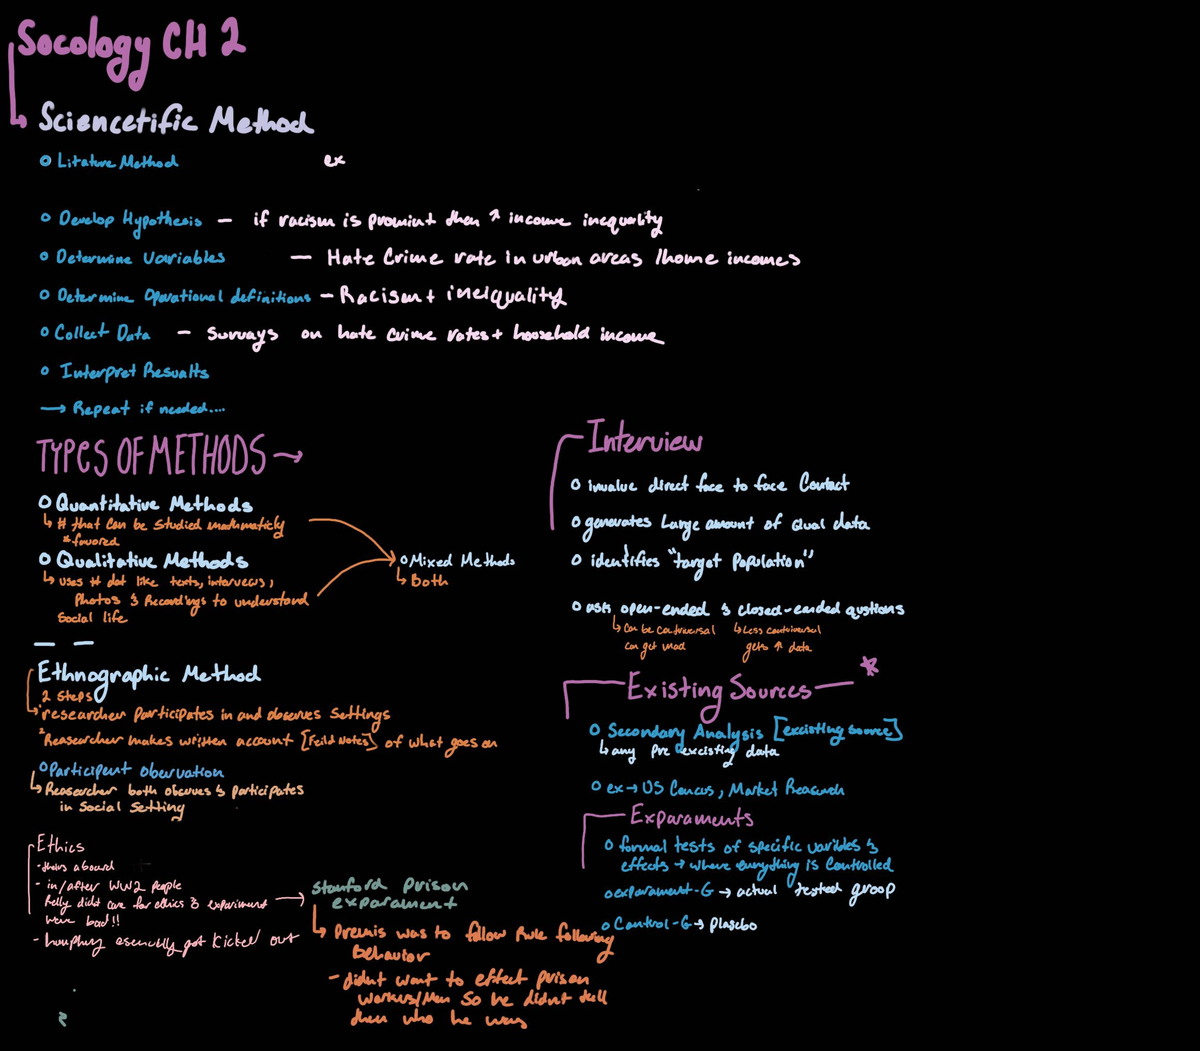 Socology CH 2
Sciencetific Method
Litature Method ex
Develop Hypothesis — if racism is promint then ↑ income inequality
Determine Variables — Hate Crime rate in urban areas / home incomes
Determine Operational definitions — Racism + inequality
Collect Data — Survays on hate crime rates + household income
Interpret Resualts
→ Repeat if needed....
TYPES OF METHODS →
Quantitative Methods
↳ # that can be studied mathmaticly
*favored
Qualitative Methods
↳ uses # dat like texts, interviews,
Photos & Recordings to understand
Social life
Mixed Methods
↳ Both
— —
Ethnographic Method
2 Steps
'researcher participates in and observes settings
²Reasearcher makes written account [Feild Notes] of what goes on
Participent obervation
↳ Reasearcher both observes & participates
in Social Setting
Ethics
- aboard
- in/after WW2 people
Relly didnt care for ethics & experiment
were bad!!
- humphry esencially got kicked out
Stanford prison
exparament
↳ Premis was to follow Rule following
behavior
- didnt want to effect prison
workers/Men so he didnt tell
them who he was
Interview
invalue direct face to face Contact
generates Large amount of Qual data
identifies "target population"
ask open-ended & closed-ended qustions
↳ Can be contriversal ↳ Less contriversal
can get mad gets ↑ data
Existing Sources
Secondary Analysis [excisting source]
↳ any pre excisting data
ex → US Concus, Market Reasearch
Exparaments
formal tests of specific varibles &
effects → where everything is Controlled
exparament-G → actual tested groop
Control-G → Placebo